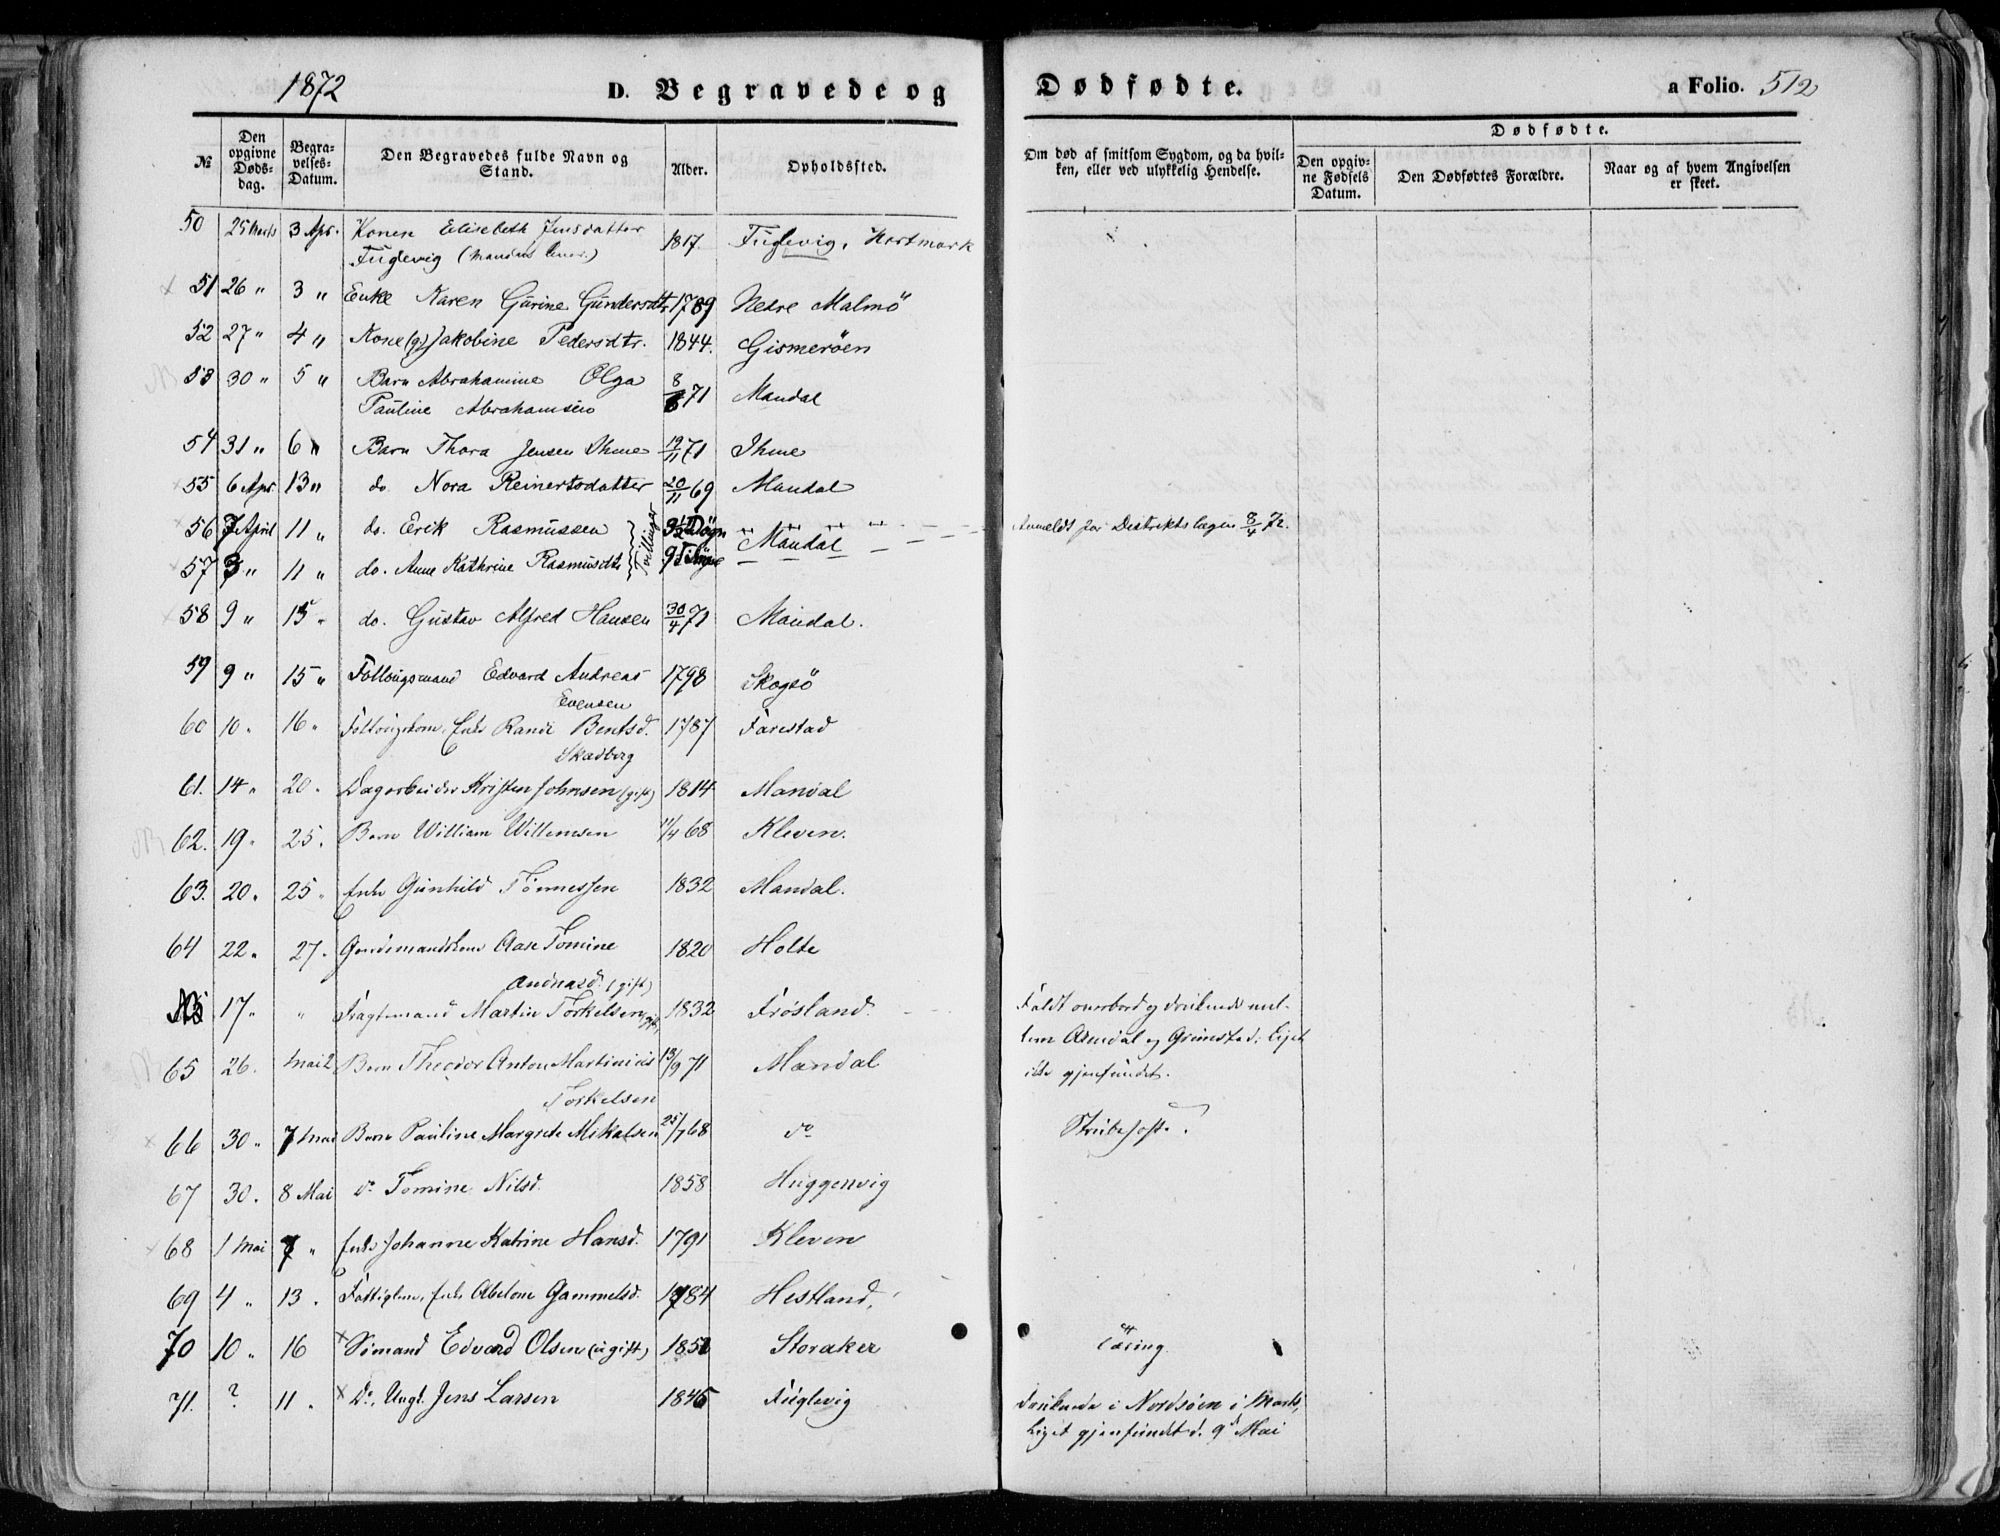 1872 D. Begravede og Dødfødte. a Folio. 512
№ Den opgivne Dødsdag. Begravelses-Datum. Den Begravedes fulde Navn og Stand. Alder. Opholdssted. Om død af smitsom Sygdom, og da hvilken, eller ved ulykkelig Hendelse. Dødfødte. Den opgivne Fødsels Datum. Den Dødfødtes Forældre. Naar og af hvem Angivelsen er skeet.
50 25 Marts 3 Apr. Konen Elisebeth Jensdatter 1817. Fuglevig, Hartmark
Fuglevig
51 26 " 3 " Enke Karen Gurine Gundersdtr 1789 Nedre Malmö
52 27 " 4 " Kone (g) Jakobine Pedersdtr. 1844. Gismerøen
53 30 " 5 " Barn Abrahamine Olga 8/6 71 Mandal
Pauline Abrahamsen
54 31 " 6 " Barn Thora Jensen Ihme 19/11 71 Ihme
55 6 Apr 13 " do Nora Reinertsdatter 20/11 69 Mandal
56 7 April 11 " do. Erik Rasmussen Tvillinger 9½ Døgn Mandal Anmeldt for Distriktslægen 8/4 72.
57 " 11 " do. Anne Kathrine Rasmusdtr
58 9 " 15 " do. Gustav Alfred Hansen 30/4 71 Mandal.
59 9 " 15 " Follougsmand Edvard Andreas 1798 Skogsö
Evensen
60 10 " 16 " Follougskone, Enke Randi Bentsd. 1787 Farestad
Skadberg
61. 14 " 20 " Dagarbeider Kristen Johnsen (gift) 1814 Mandal
62. 19 " 25. Barn William Willemsen 11/4 68 Kleven.
63. 20. 25 " Enke Gunhild Tønnessen 1832 Mandal.
64 22 " 27. Gaardmandskone Aase Tomine 1820 Holte
Andreasd. (gift)
17 " " Fragtemand Martin Torkelsen gift, 1832 Frøsland. Faldt overbord og druknede mellem Arendal og Grimstad; Liget
ikke gjenfundet.
65 26. Mai 2 Barn Theodor Anton Martinius 13/9 71 Mandal
Torkelsen
66 30 " 7 Mai Barn Pauline Margrete Mikalsen 25/7 68 do Strubehoste.
67 30. 8 Mai do Tomine Nilsd. 1858 Huggenvig
68 1 Mai 7 " Enke Johanne Katrine Hansd. 1791 Kleven
69 4 " 13. Fattiglem, Enke Abelone Gammelsd. 1784 Hestland,
70 10 " 16 × Sømand Edvard Olsen (ugift) 1851 Storaker Tæring
71. ? 11. × Do, Ungk. Jens Larsen 1845 Fuglevig druknede i Nordsøen i Marts,
Liget gjenfundet d. 9d Mai